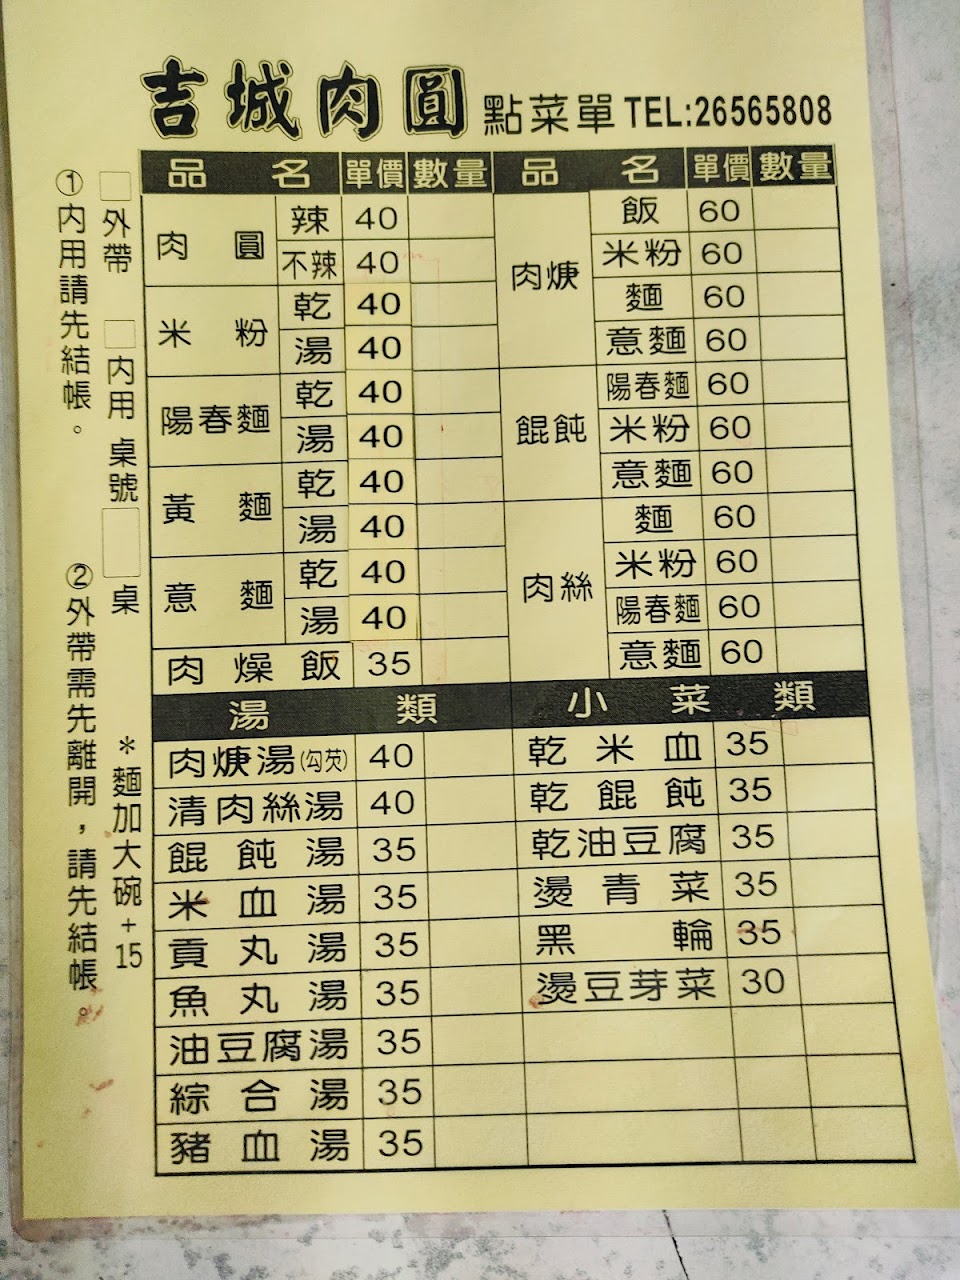 吉城肉圓 點菜單 TEL:26565808
①內用請先結帳。
②外帶需先離開，請先結帳。
□外帶 □內用 桌號 桌
＊麵加大碗+15
品名 單價 數量 品名 單價 數量
肉圓 辣 40
不辣 40
米粉 乾 40
湯 40
陽春麵 乾 40
湯 40
黃麵 乾 40
湯 40
意麵 乾 40
湯 40
肉燥飯 35
肉焿 飯 60
米粉 60
麵 60
意麵 60
餛飩 陽春麵 60
米粉 60
意麵 60
肉絲 麵 60
米粉 60
陽春麵 60
意麵 60
湯類
肉焿湯(勾芡) 40
清肉絲湯 40
餛飩湯 35
米血湯 35
貢丸湯 35
魚丸湯 35
油豆腐湯 35
綜合湯 35
豬血湯 35
小菜類
乾米血 35
乾餛飩 35
乾油豆腐 35
燙青菜 35
黑輪 35
燙豆芽菜 30